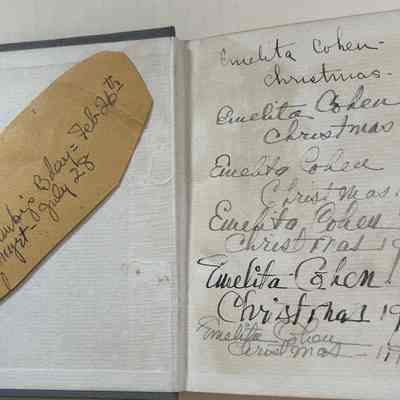 B'day = Feb 26th
July 28
Emelita Cohen-
Christmas-
Emelita Cohen
Christmas
Emelita Cohen
Christmas.
Emelita Cohen
Christmas 19
Emelita Cohen
Christmas 19
Emelita Cohen
Christmas - 19